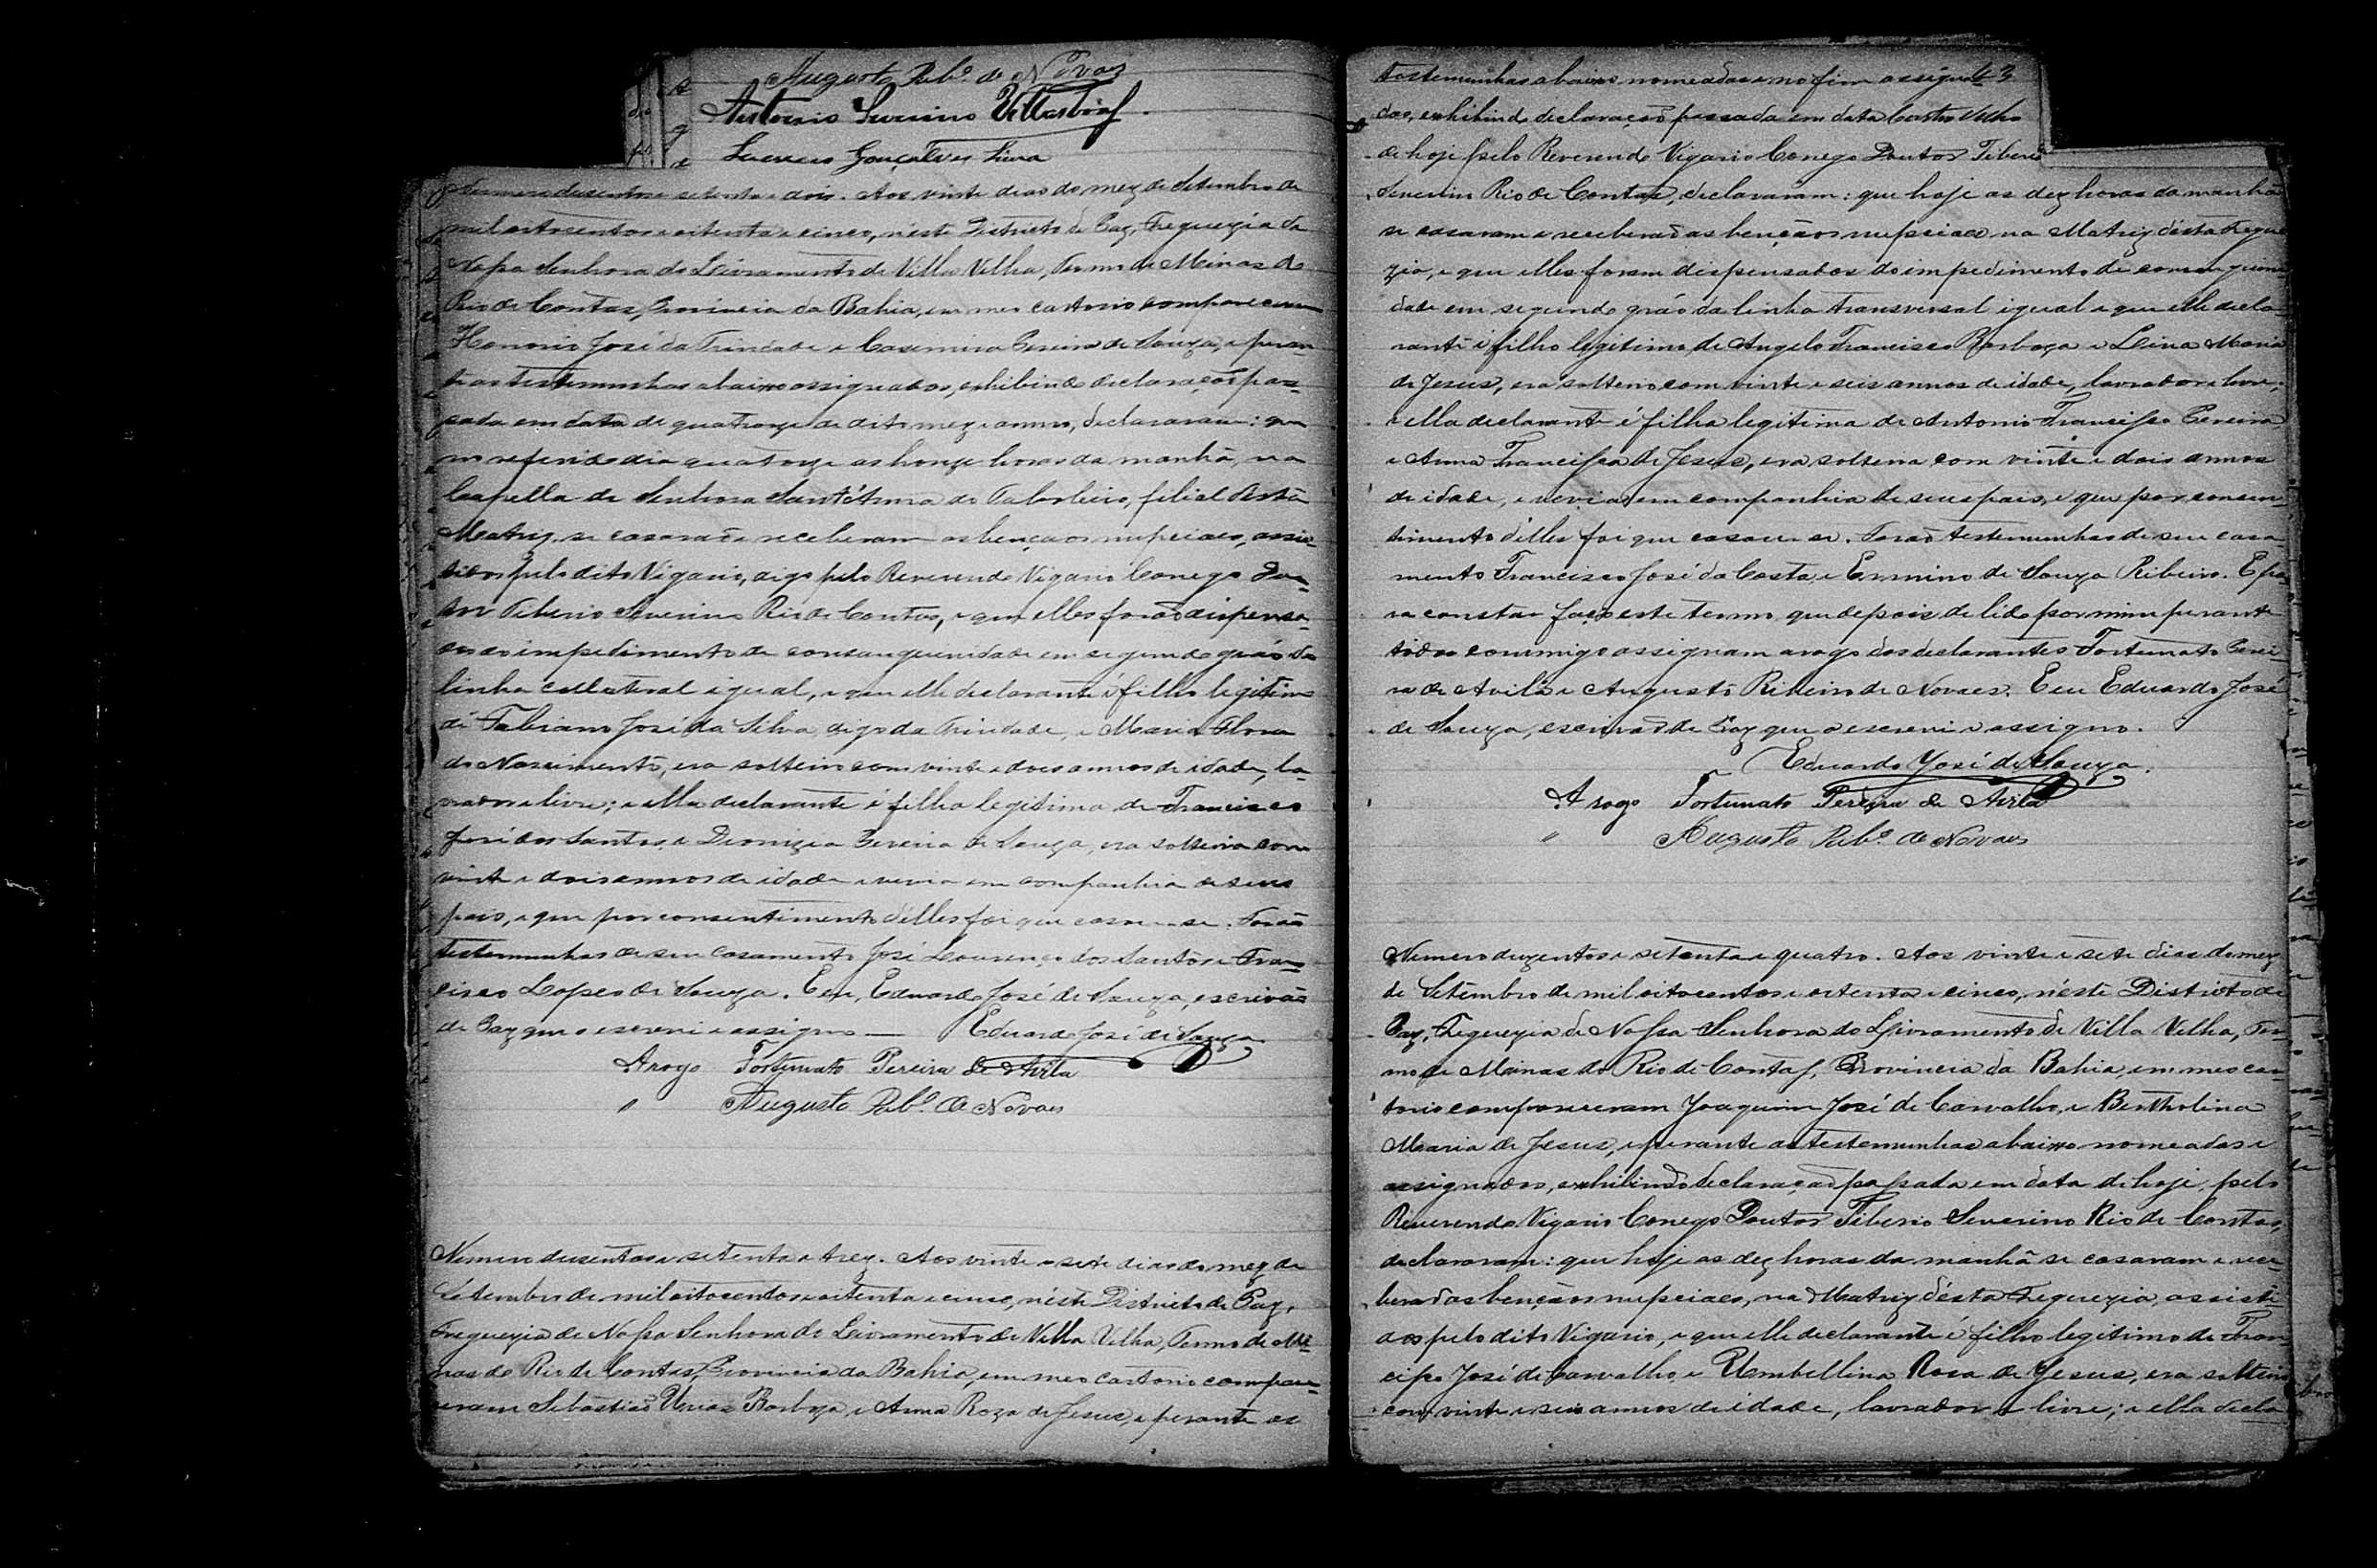 Augusto Rib.º de Novaes
Antonio Severino Villasbôas
Gonçalves Lima
Numero dusentos e setenta e dois. Aos vinte dias do mez de Setembro de
mil oitocentos e oitenta e cinco, n'este Districto de Paz, Freguezia de
Nossa Senhora do Livramento de Villa Velha, Termo de Minas do
Rio de Contas, Provincia da Bahia, em meo cartorio compareceram
Honorio José da Trindade e Casemira Pereira de Souza, e peran-
te as testemunhas abaixo assignados, exhibindo declaração pas-
sada em data de quatorze de dito mez e anno, declararam: que
no referido dia quatorze as honze horas da manhã, na
Capella da Senhora Sant'Anna do Taboleiro, filial desta
Matriz, se casarão e receberam as bençaos nupciaes, assis-
tidos pelo dito Vigario, digo pelo Reverendo Vigario Conego Dou-
tor Tiberio Severino Rio de Contas, e que elles forão dispensa-
dos do impedimento de consanguinidade em segundo gráo da
linha collateral igual, e que elle declarante é filho legitimo
de Fabiano José da Silva, digo da Trindade, e Maria Flora
do Nascimento, era solteiro com vinte e dois annos de idade, la-
vrador e livre; e ella declarante é filha legitima de Francisco
José dos Santos, e Dionizia Pereira de Souza, era solteira com
vinte e dois annos de idade e vivia em companhia de seus
pais, e que por consentimento d'elles foi que casou-se. Forão
testemunhas de seu casamento José Lourenço dos Santos e Fran-
cisco Lopes de Souza. E eu, Eduardo José de Souza, escrivão
de Paz que o escrevi e assigno — Eduardo José de Souza
Arogo Fortunato Pereira de Avila
" Augusto Rib.º de Novaes
Numero dusentos e setenta e trez. Aos vinte e sete dias do mez de
Setembro de mil oitocentos e oitenta e cinco, n'este Districto de Paz,
Freguezia de Nossa Senhora do Livramento de Villa Velha, Termo de Mi-
nas do Rio de Contas, Provincia da Bahia, em meo cartorio compare-
ceram Sebastião Barboza e Anna Roza de Jesus, e perante as
testemunhas abaixo nomeadas e no fim assigna- 43
das, exhibindo declaração passada em data Castro Velho
de hoje pelo Reverendo Vigario Conego Doutor Tiberio
Severino Rio de Contas, declararam: que hoje as dez horas da manhã
se casaram e receberão as bençãos nupciaes na Matriz d'esta Fregue-
zia, e que elles foram dispensados do impedimento de consanguini-
dade em segundo gráo da linha transversal igual e que elle decla-
rante é filho legitimo de Angelo Francisco Barboza e Maria
de Jesus, era solteiro com vinte e seis annos de idade, lavrador e livre;
e ella declarante é filha legitima de Antonio Francisco Pereira,
e Anna Francisca de Jesus, era solteira com vinte e dois annos
de idade, e vivia em companhia de seus pais, e que por consen-
timento d'elles foi que casou-se. Forão testemunhas de seu casa-
mento Francisco José da Costa e Ermino de Souza Ribeiro. E pa-
ra constar faço este termo que depois de lido por mim perante
todos commigo assignam arogo dos declarantes Fortunato Perei-
ra de Avila e Augusto Ribeiro de Novaes. E eu Eduardo José
de Souza, escrivão de Paz que o escrevi e assigno.
Eduardo José de Souza.
Arogo Fortunato Pereira de Avila
" Augusto Rib.º de Novaes
Numero duzentos e setenta e quatro. Aos vinte e sete dias do mez
de Setembro de mil oitocentos e oitenta e cinco, n'este Districto de
Paz, Freguezia de Nossa Senhora do Livramento de Villa Velha, Ter-
mo de Minas do Rio de Contas, Provincia da Bahia, em meo car-
torio compareceram Joaquim José de Carvalho, e Bertholina
Maria de Jesus, e perante as testemunhas abaixo nomeadas e
assignados, exhibindo declaração passada em data de hoje, pelo
Reverendo Vigario Conego Doutor Tiberio Severino Rio de Contas,
declararam: que hoje as dez horas da manhã se casaram e rece-
berão as bençãos nupciaes, na Matriz d'esta Freguezia, assisti-
dos pelo dito Vigario, e que elle declarante é filho legitimo de Fran-
cisco José de Carvalho, e Umbellina Rosa de Jesus, era solteiro
com vinte e seis annos de idade, lavrador e livre; e ella decla-